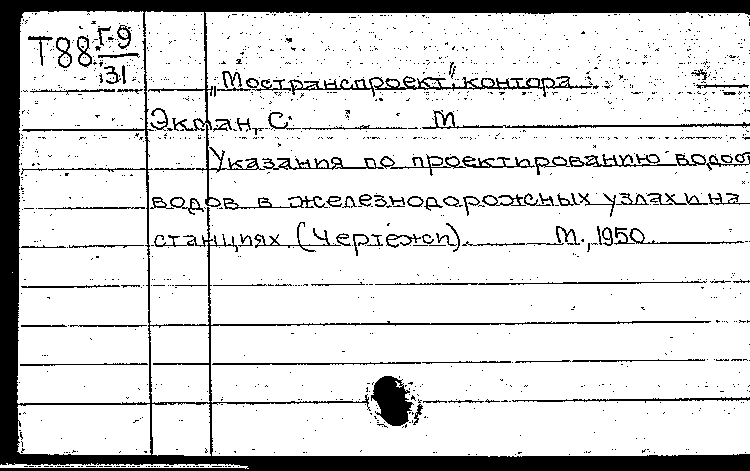 Т88 Г-9
31
„Мостранспроект", контора
Экман, С. М
Указания по проектированию водоот
водов в железнодорожных узлах и на
станциях (Чертежи). М., 1950.